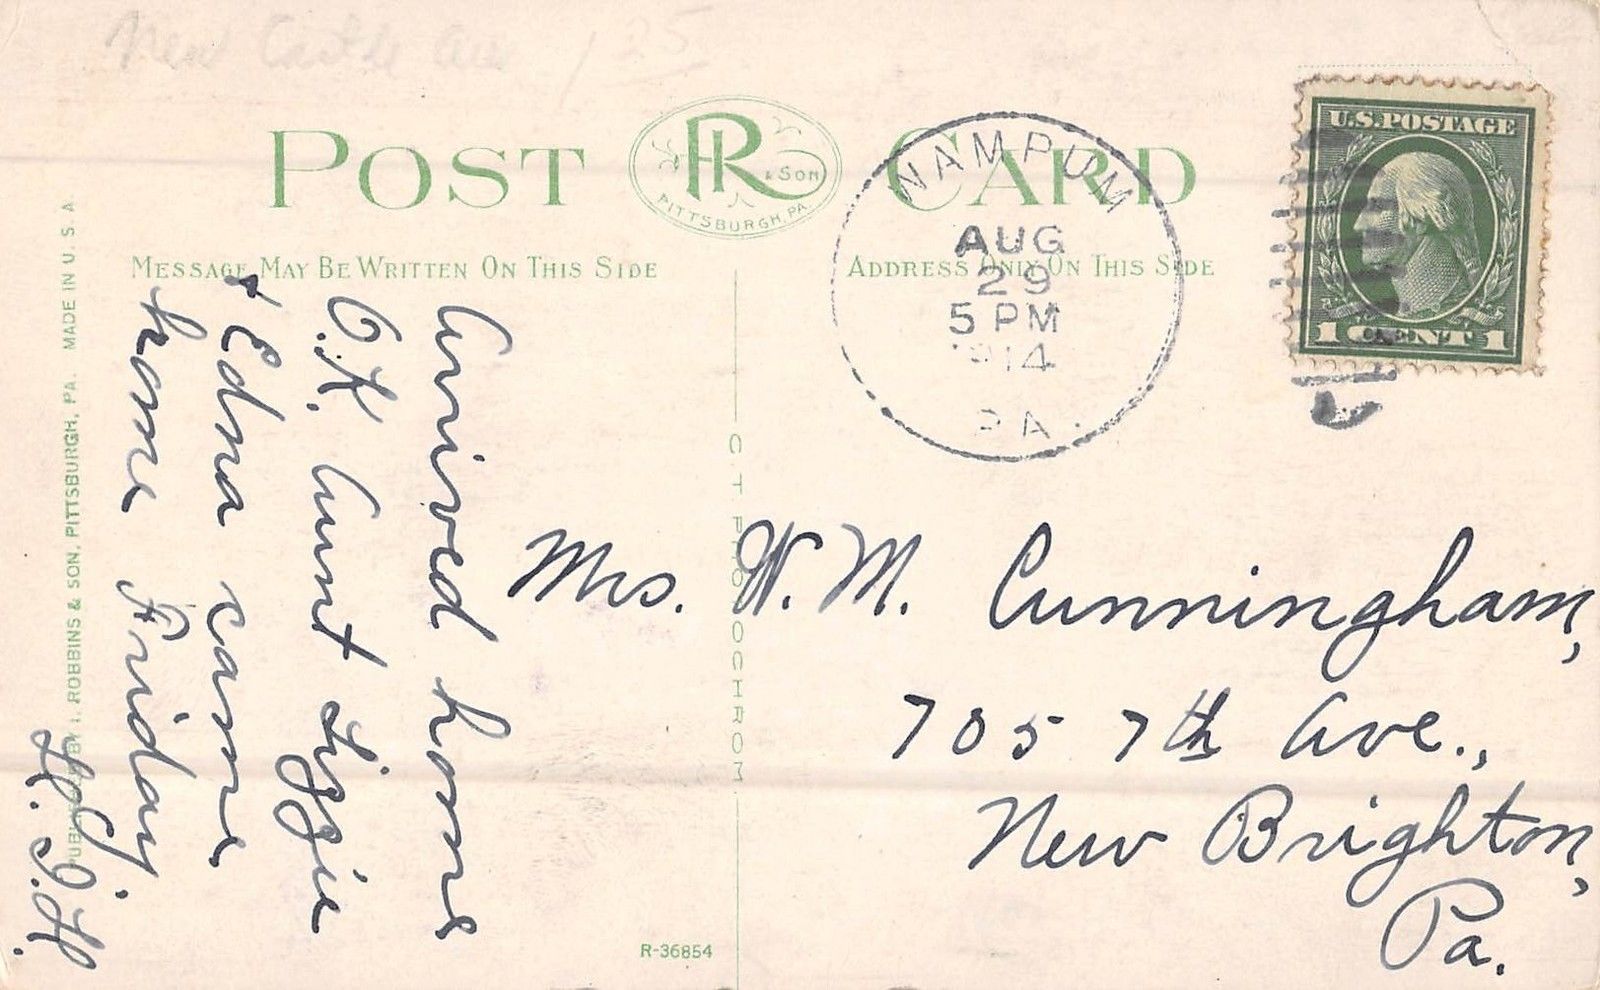 New Castle Ave 125
POST CARD
R & SON
PITTSBURGH, PA.
MESSAGE MAY BE WRITTEN ON THIS SIDE
ADDRESS ONLY ON THIS SIDE
WAMPUM
AUG
29
5 PM
1914
PA.
U.S. POSTAGE
1 CENT 1
Arrived home
O.K. Aunt Lizzie
& Edna came
home Friday.
Mrs. W. M. Cunningham,
705 7th Ave.,
New Brighton,
Pa.
PUBLISHED BY I. ROBBINS & SON, PITTSBURGH, PA. MADE IN U. S. A.
C. T. PHOTOCHROM
R-36854